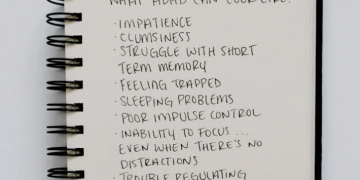 WHAT ADHD CAN LOOK LIKE:
· IMPATIENCE
· CLUMSINESS
· STRUGGLE WITH SHORT
TERM MEMORY
· FEELING TRAPPED
· SLEEPING PROBLEMS
· POOR IMPULSE CONTROL
· INABILITY TO FOCUS ...
EVEN WHEN THERE'S NO
DISTRACTIONS
· TROUBLE REGULATING